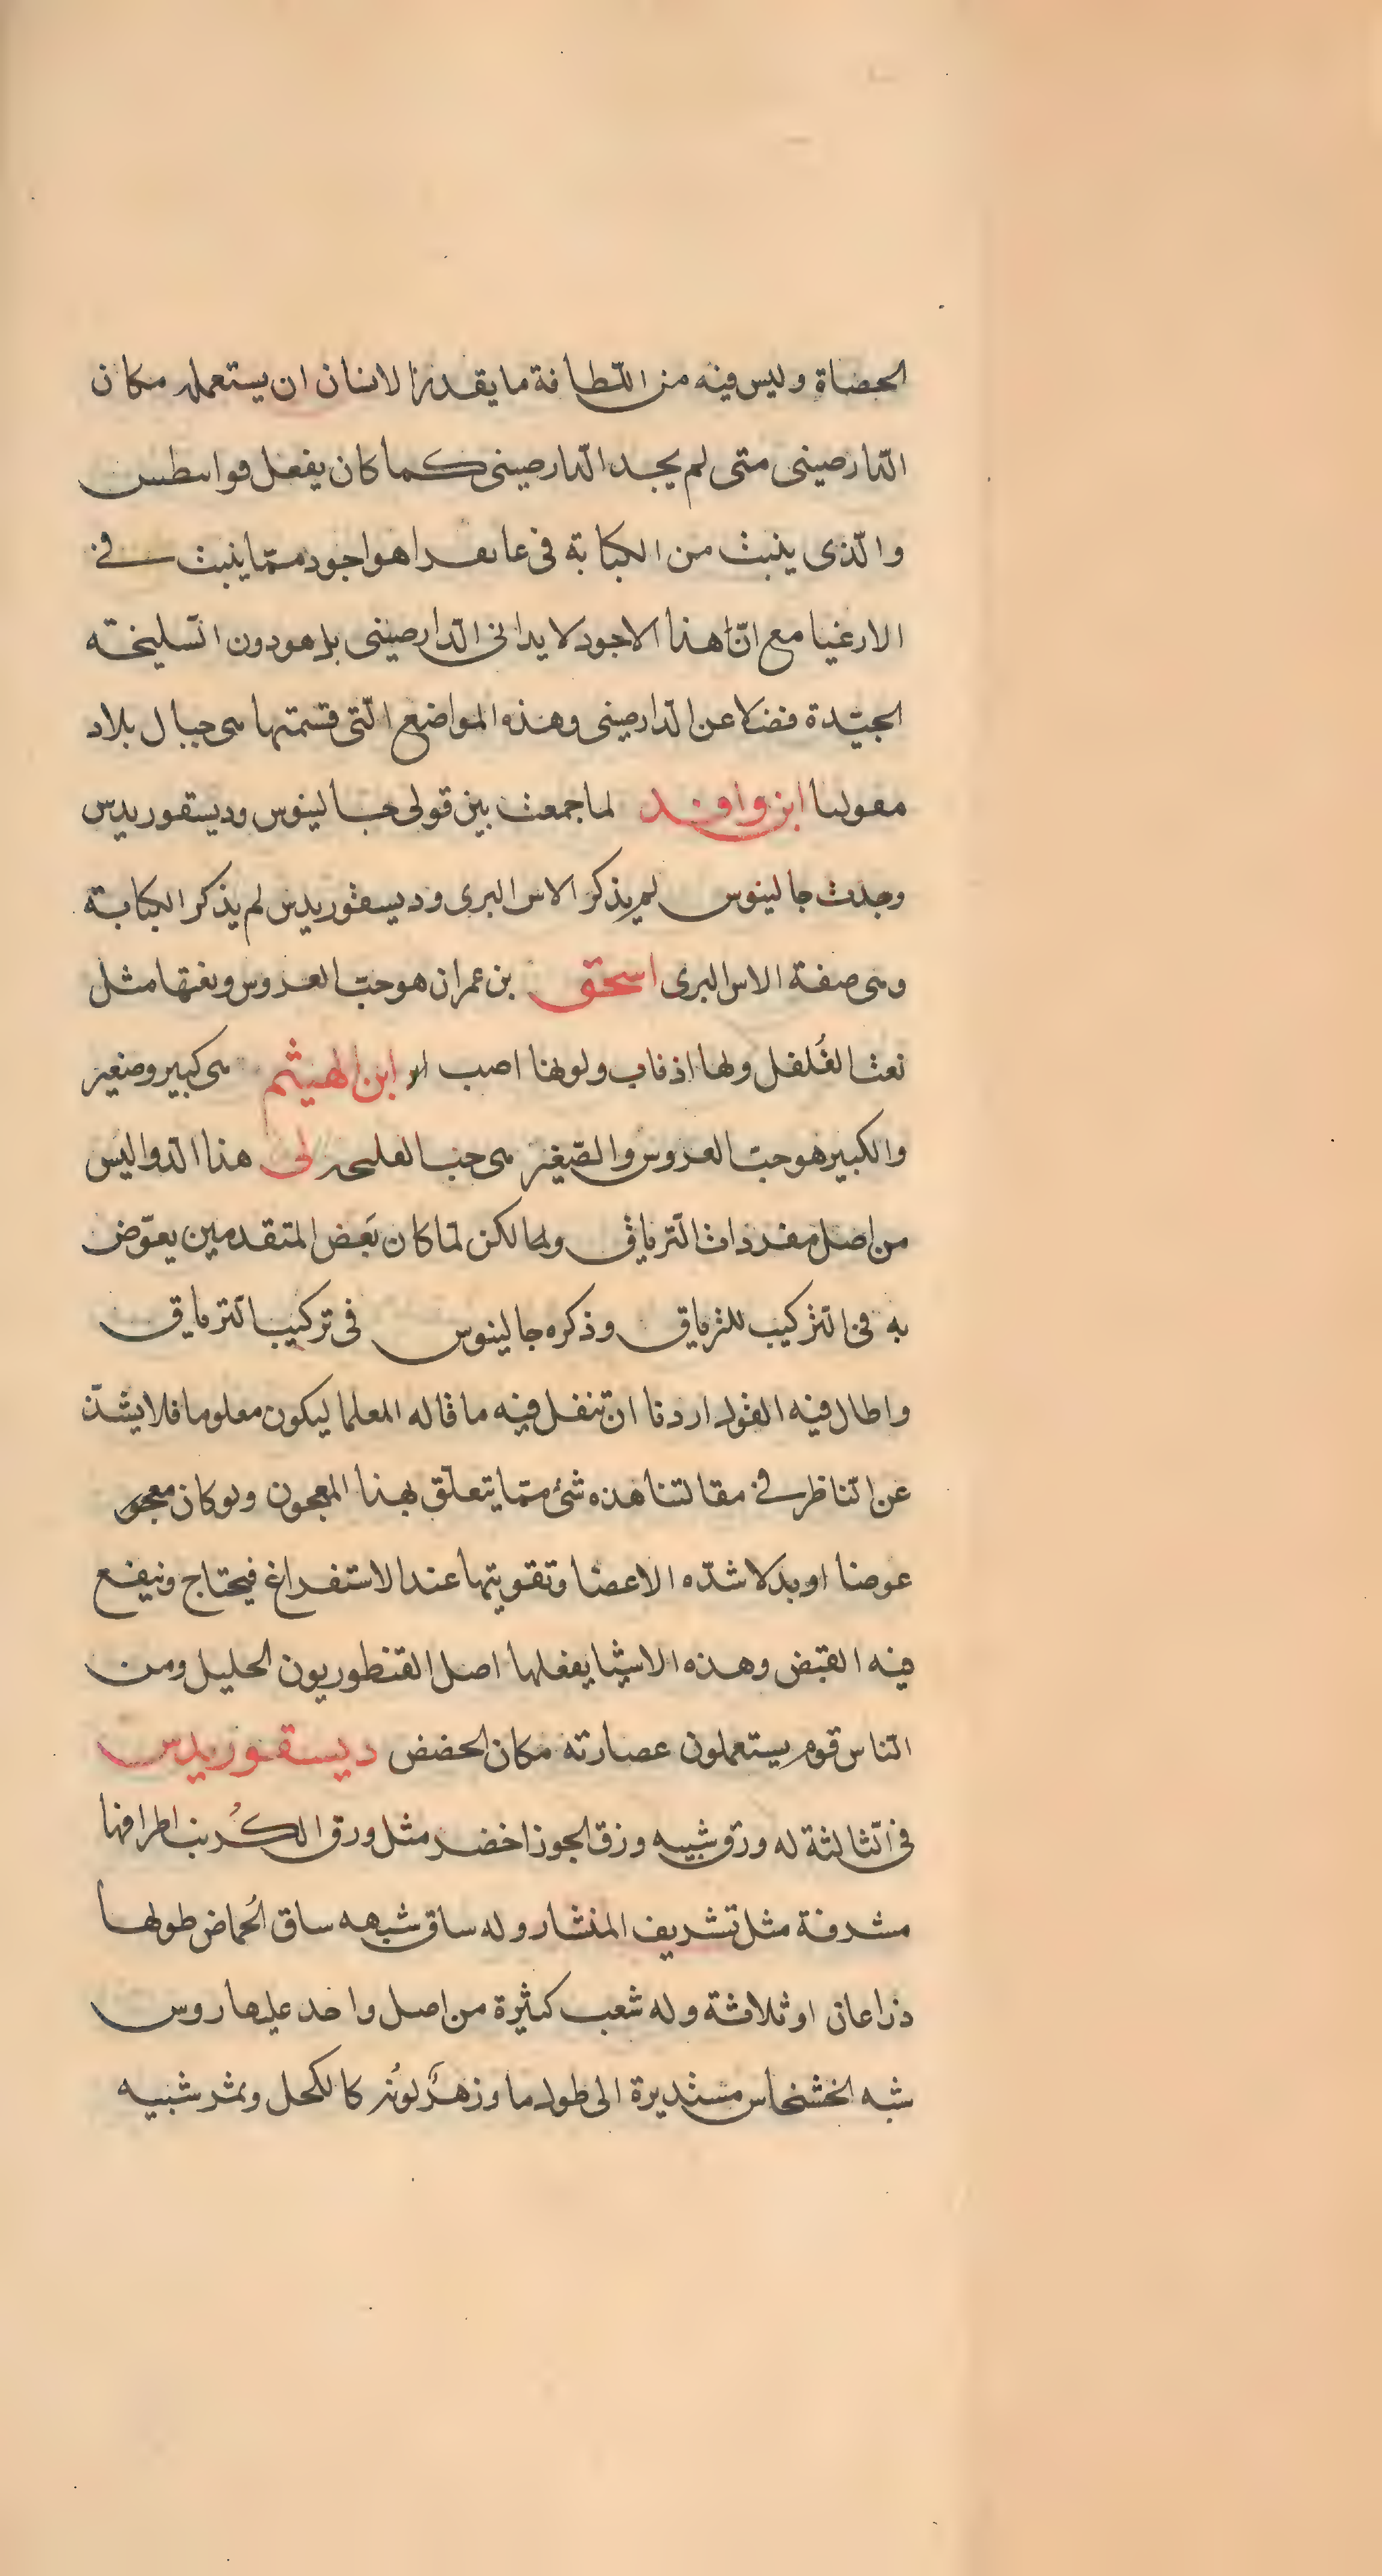 الحصاة وليس فيه من اللّطافة ما يقدر الانسان ان يستعمله مكان
الدّارصينى متى لم يجد الدّارصينى كما كان يفعل قواسطس
والّذى ينبت من الكبابة فى هو اجود ممّا ينبت فى
الارغنيا مع انّ هذا الاجود لا يدانى الدّارصينى بل هو دون السّليخته
الجيّدة فضلا عن الدّارصينى وهذه المواضع الّتى قسمتها هى جبال بلاد
ابن وافد لما جمعت بين قولى جالينوس وديسقوريدس
وجدت جالينوس لم يذكر الاس البرى وديسقوريدس لم يذكر الكبابة
وهى صفة الاس البرى اسحق بن عمران هو حبّ العروس ونعتها مثل
نعت الفُلفل ولها اذناب ولونها اصهب ابن الهيثم هى كبير وصغير
والكبير هو حبّ العروس والصّغير هى حب لى هذا الدّوا ليس
من اصل مفردات التّرياق ولها لكن لمّا كان بَعض المتقدمين يعوّض
به فى التّركيب للترياق وذكره جالينوس فى تركيب التّرياق
واطال فيه القول اردنا ان ننقل فيه ما قاله العلما ليكون معلوما فلا يشذّ
عن النّاظر فى مقالتنا هذه شئ ممّا يتعلّق بهذا المعجون ولو كان
عوضا او بدلا شدّه الاعضا وتقويتها عند الاستفراغ فيحتاج وينفع
فيه القبض وهذه الاشيا يفعلها اصل القنطوريون الجليل ومن
النّاس قوم يستعملون عصارته مكان الحضض ديسقوريدس
فى الثّالثة له ورق شبيه ورق الجوز اخضر مثل ورق الكُرنب اطرافها
مشرفة مثل تشريف المنشار وله ساق شبهه ساق الحُماض طولها
ذراعان او ثلاثة وله شعب كثيرة من اصل واحد عليها روس
شبه الخشخاس مستديرة الى طول ما وزهرٌ لونُه كالكحل وثمر شبيه